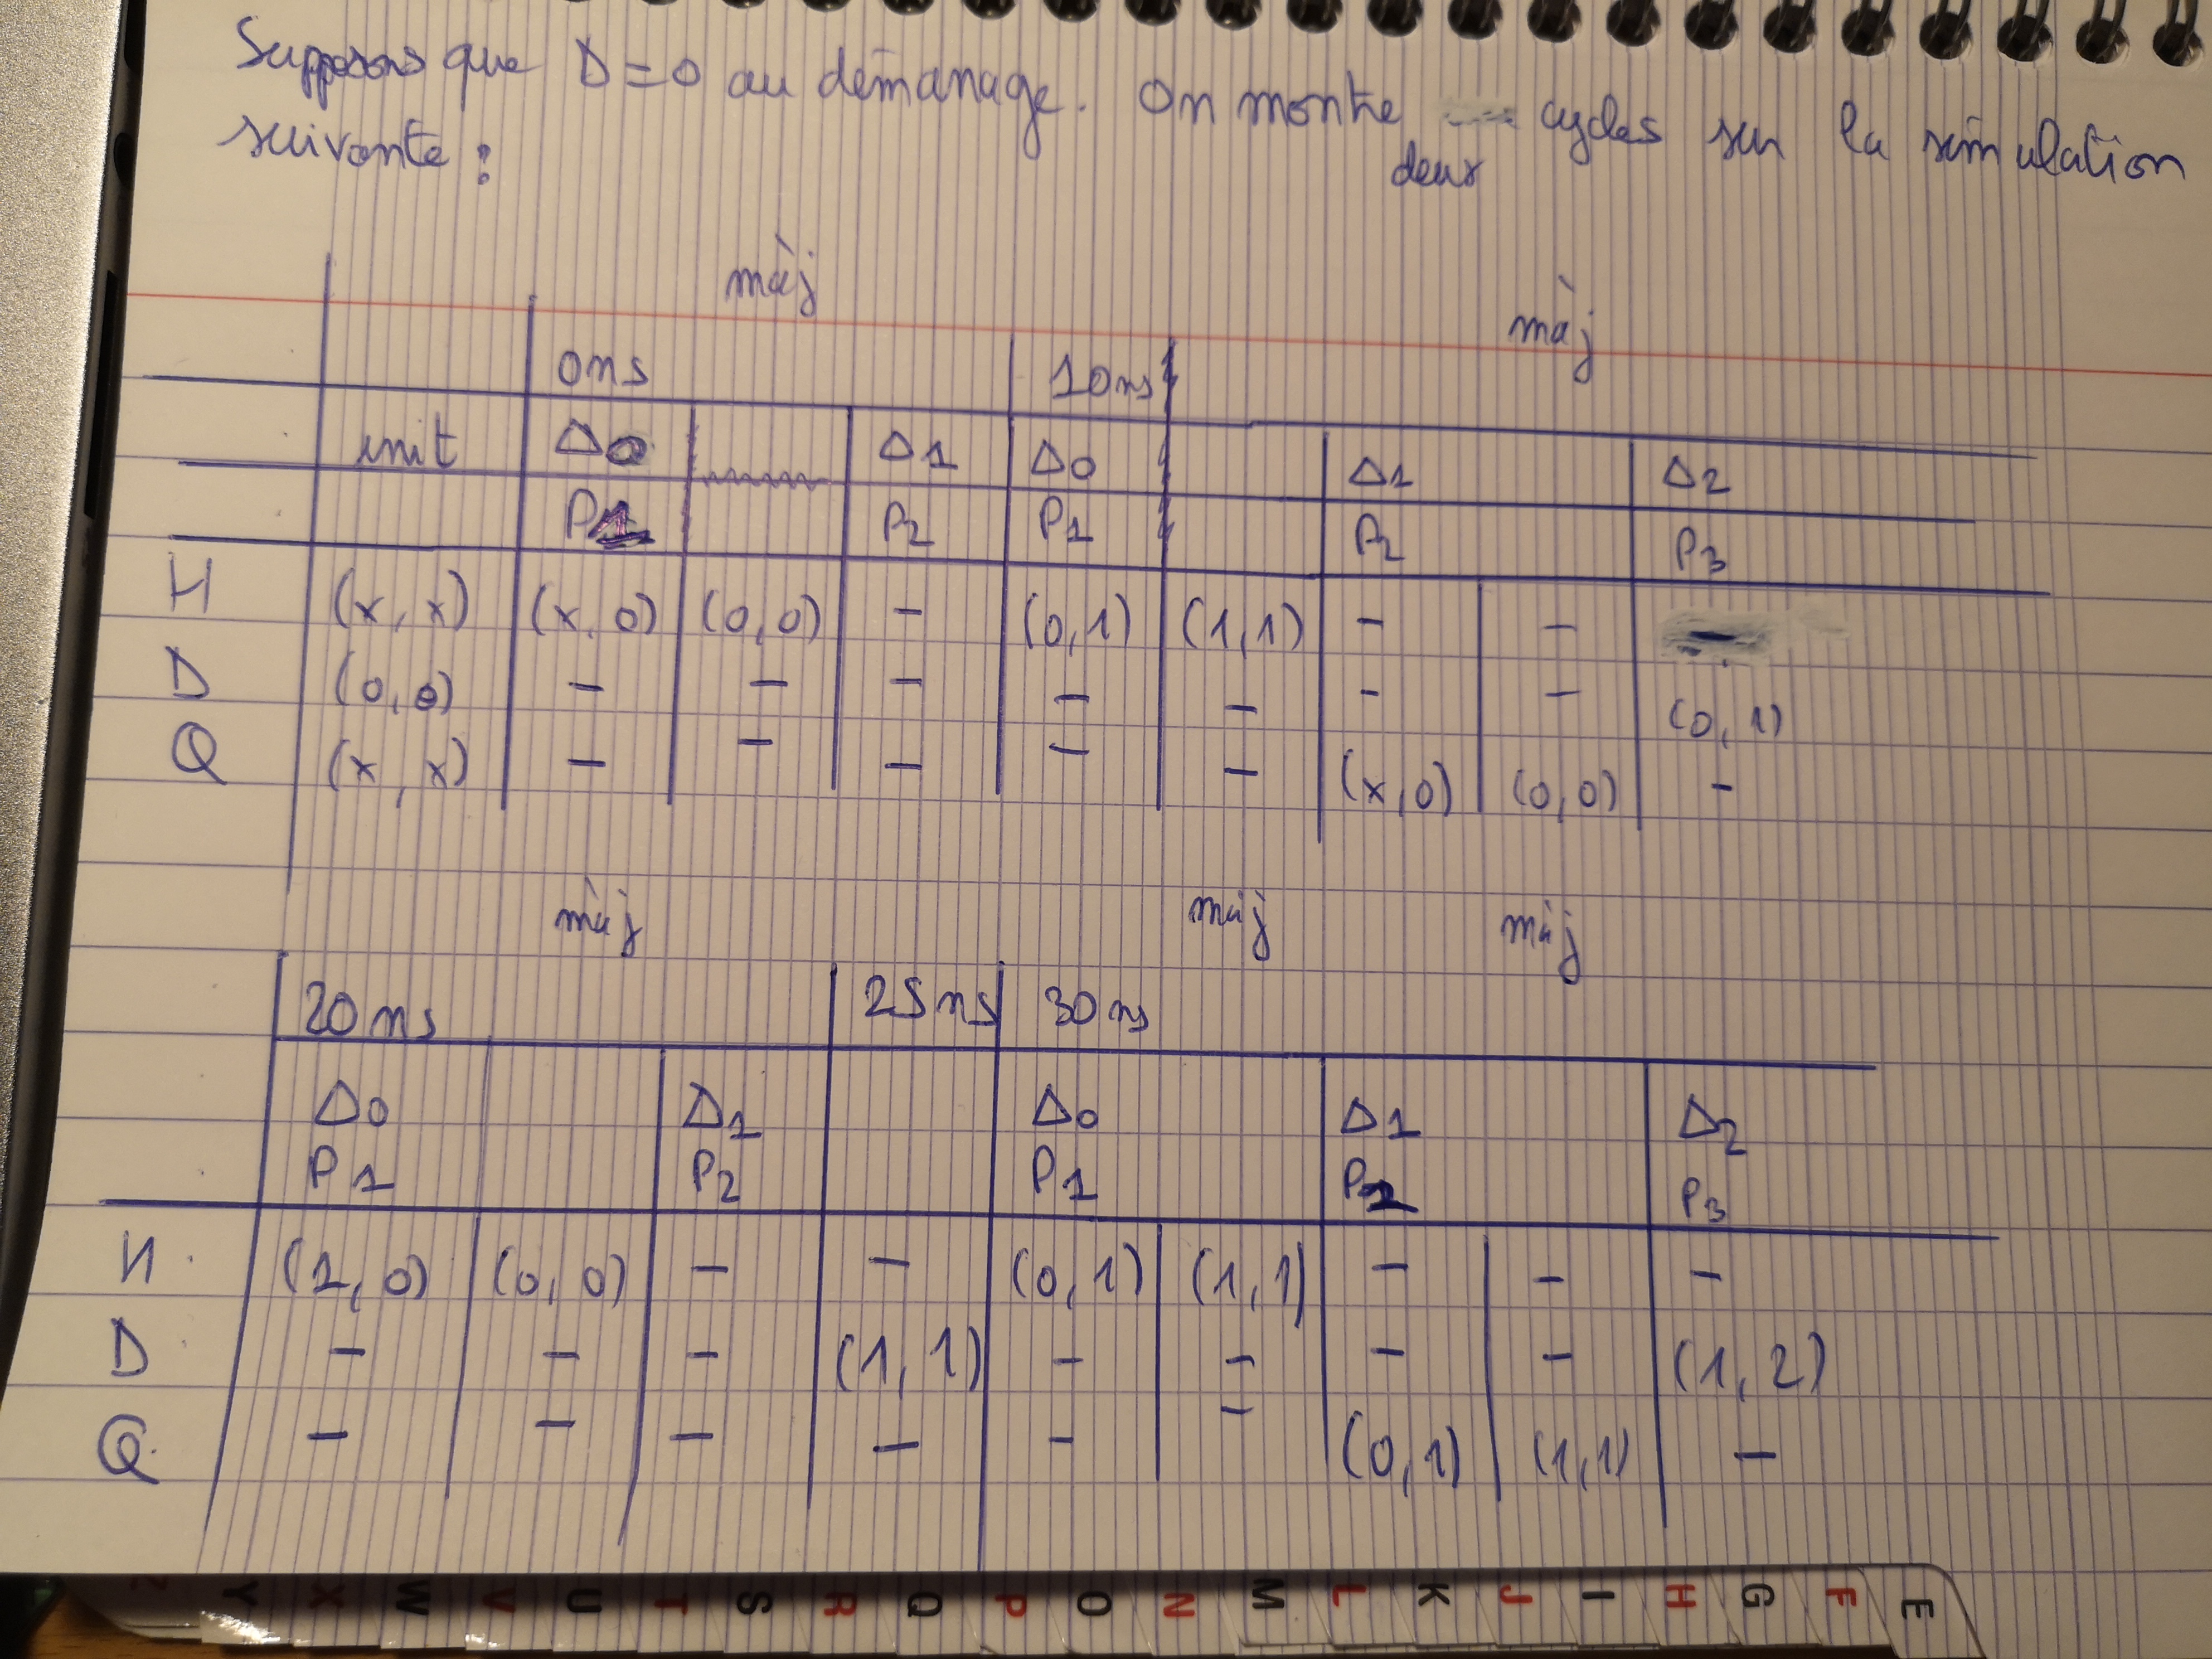 Supposons que D=0 au démarrage. On montre cycles sur la simulation
deux
suivante :
màj màj
0ns 10ns
init Δ0 Δ1 Δ0 Δ1 Δ2
P1 P2 P1 P2 P3
H (x, x) (x, 0) (0,0) - (0,1) (1,1) - -
D (0,0) - - - - - - - (0,1)
Q (x, x) - - - - - (x,0) (0,0) -
màj màj màj
20ns 25ns 30ns
Δ0 Δ1 Δ0 Δ1 Δ2
P1 P2 P1 P2 P3
H (1,0) (0,0) - - (0,1) (1,1) - - -
D - - - (1,1) - - - - (1,2)
Q - - - - - - (0,1) (1,1) -
Y X W V U T S R Q P O N M L K J I H G F E